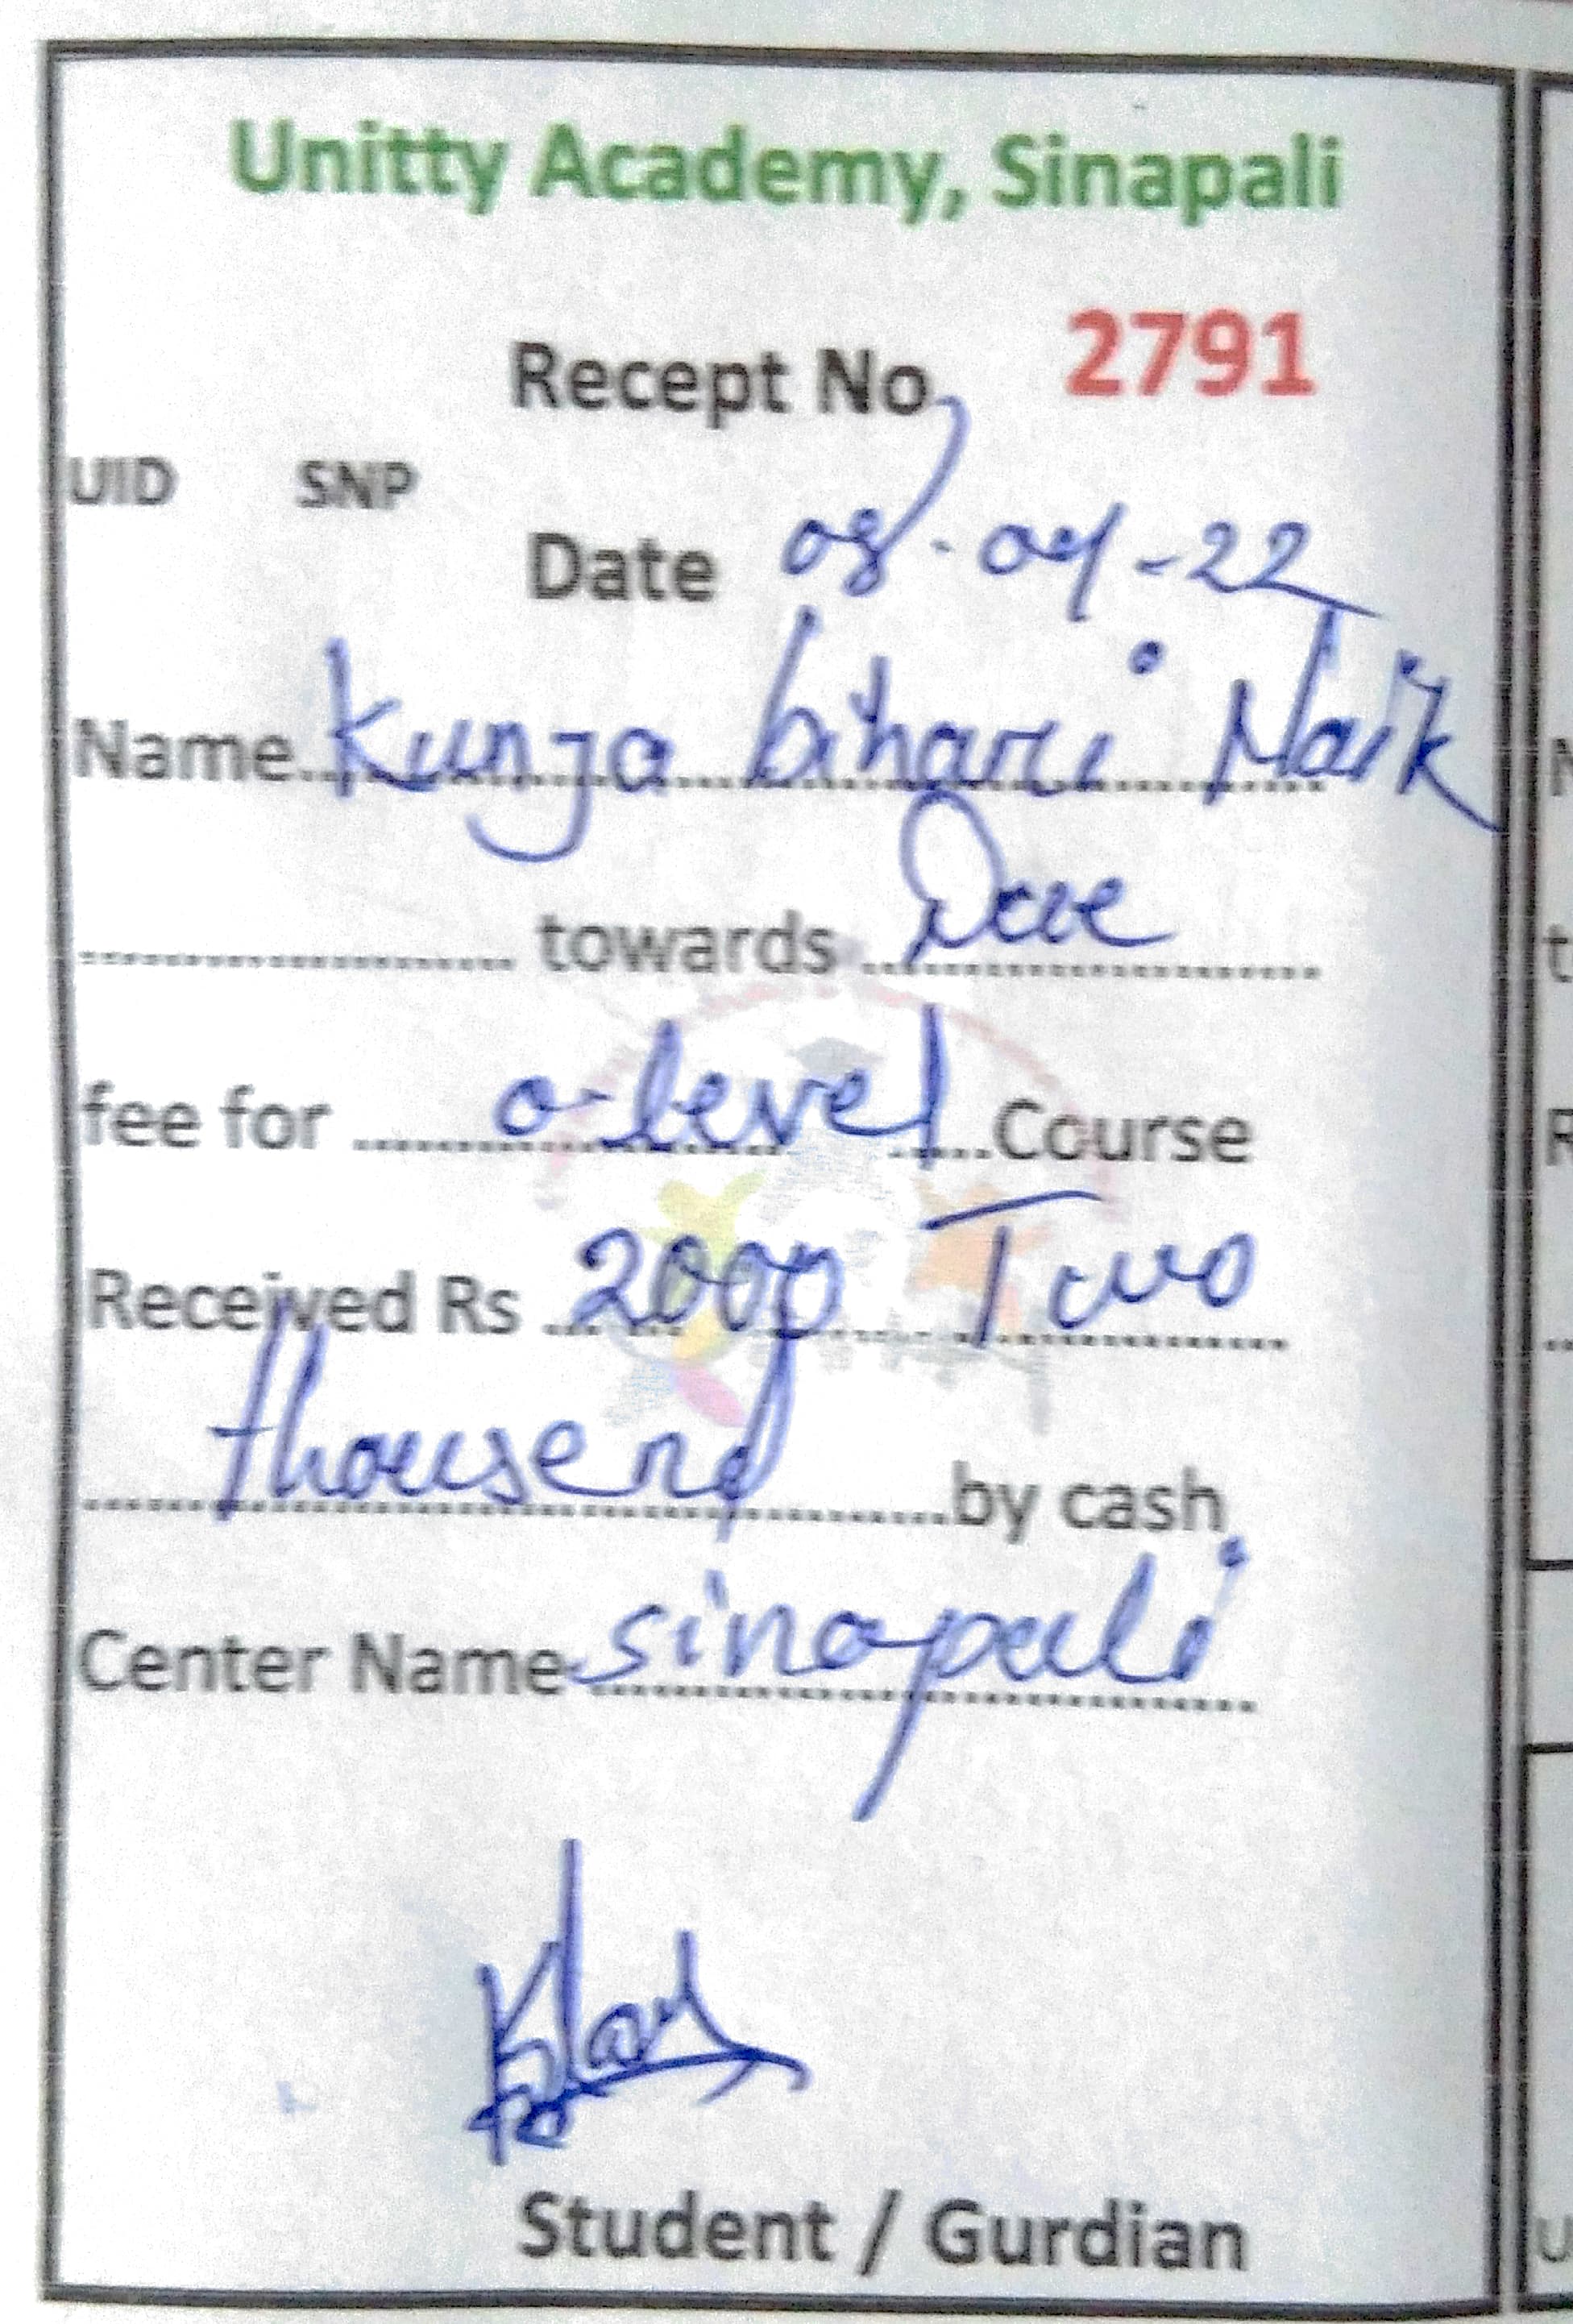 Unitty Academy, Sinapali
Recept No. 2791
UID SNP
Date 08-04-22
Name Kunja bihari Naik
towards Due
fee for o-level Course
Received Rs 2000 Two
thousend by cash
Center Name sinapali
Student / Gurdian